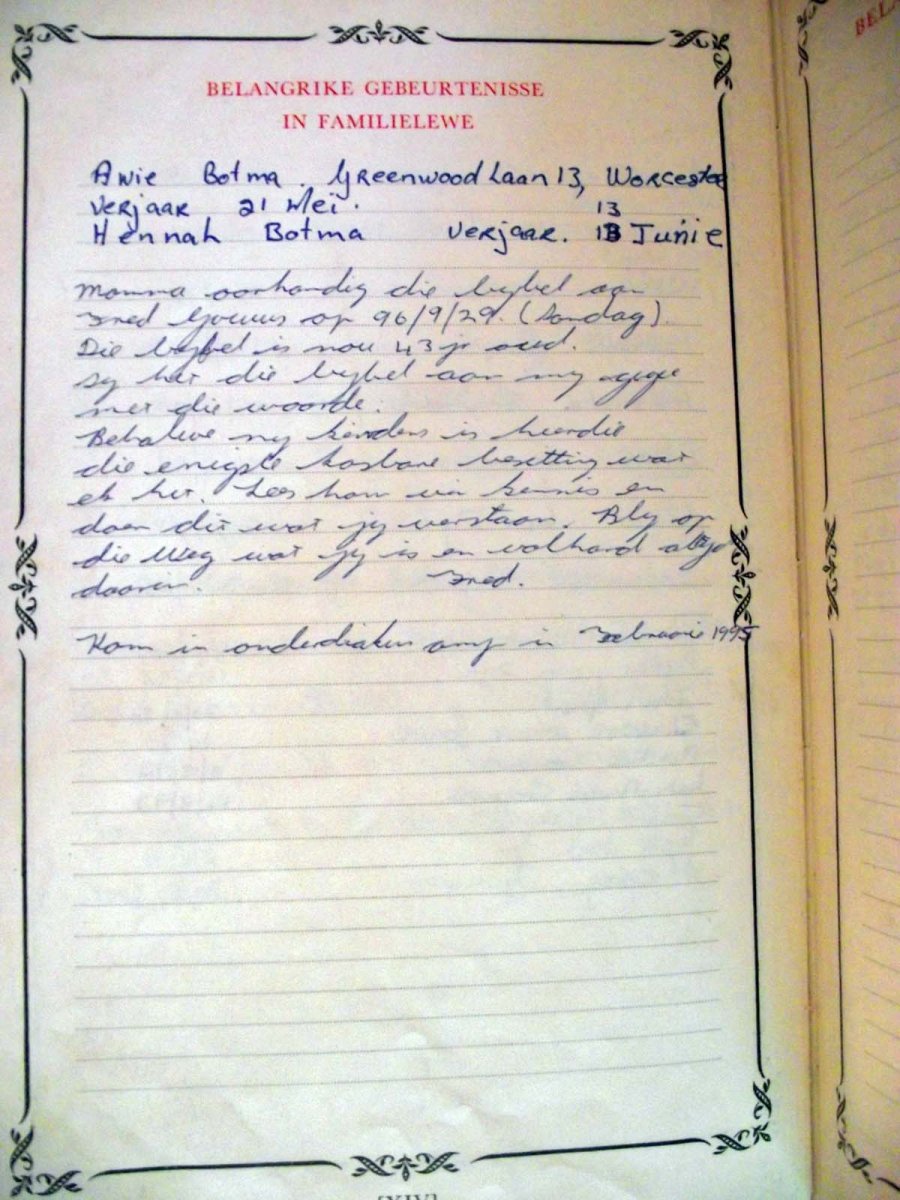 BELANGRIKE GEBEURTENISSE
IN FAMILIELEWE
Awie Botma. Greenwood Laan 13, Worcester
Verjaar 21 Mei.
13
Hennah Botma Verjaar. 13 Junie
Mamma oorhandig die bybel aan
Fred Gouws op 96/9/29. (Sondag).
Die bybel is nou 43 jr oud.
Sy het die bybel aan my gegee
met die woorde:
Behalwe my kinders is hierdie
die enigste kosbare besitting wat
ek het. Lees hom vir kennis en
doen dit wat jy verstaan. Bly op
die Weg wat jy is en volhard altyd
daarin. Fred.
Kom in onderdiaken amp in Februarie 1995
[XIV]
BELA